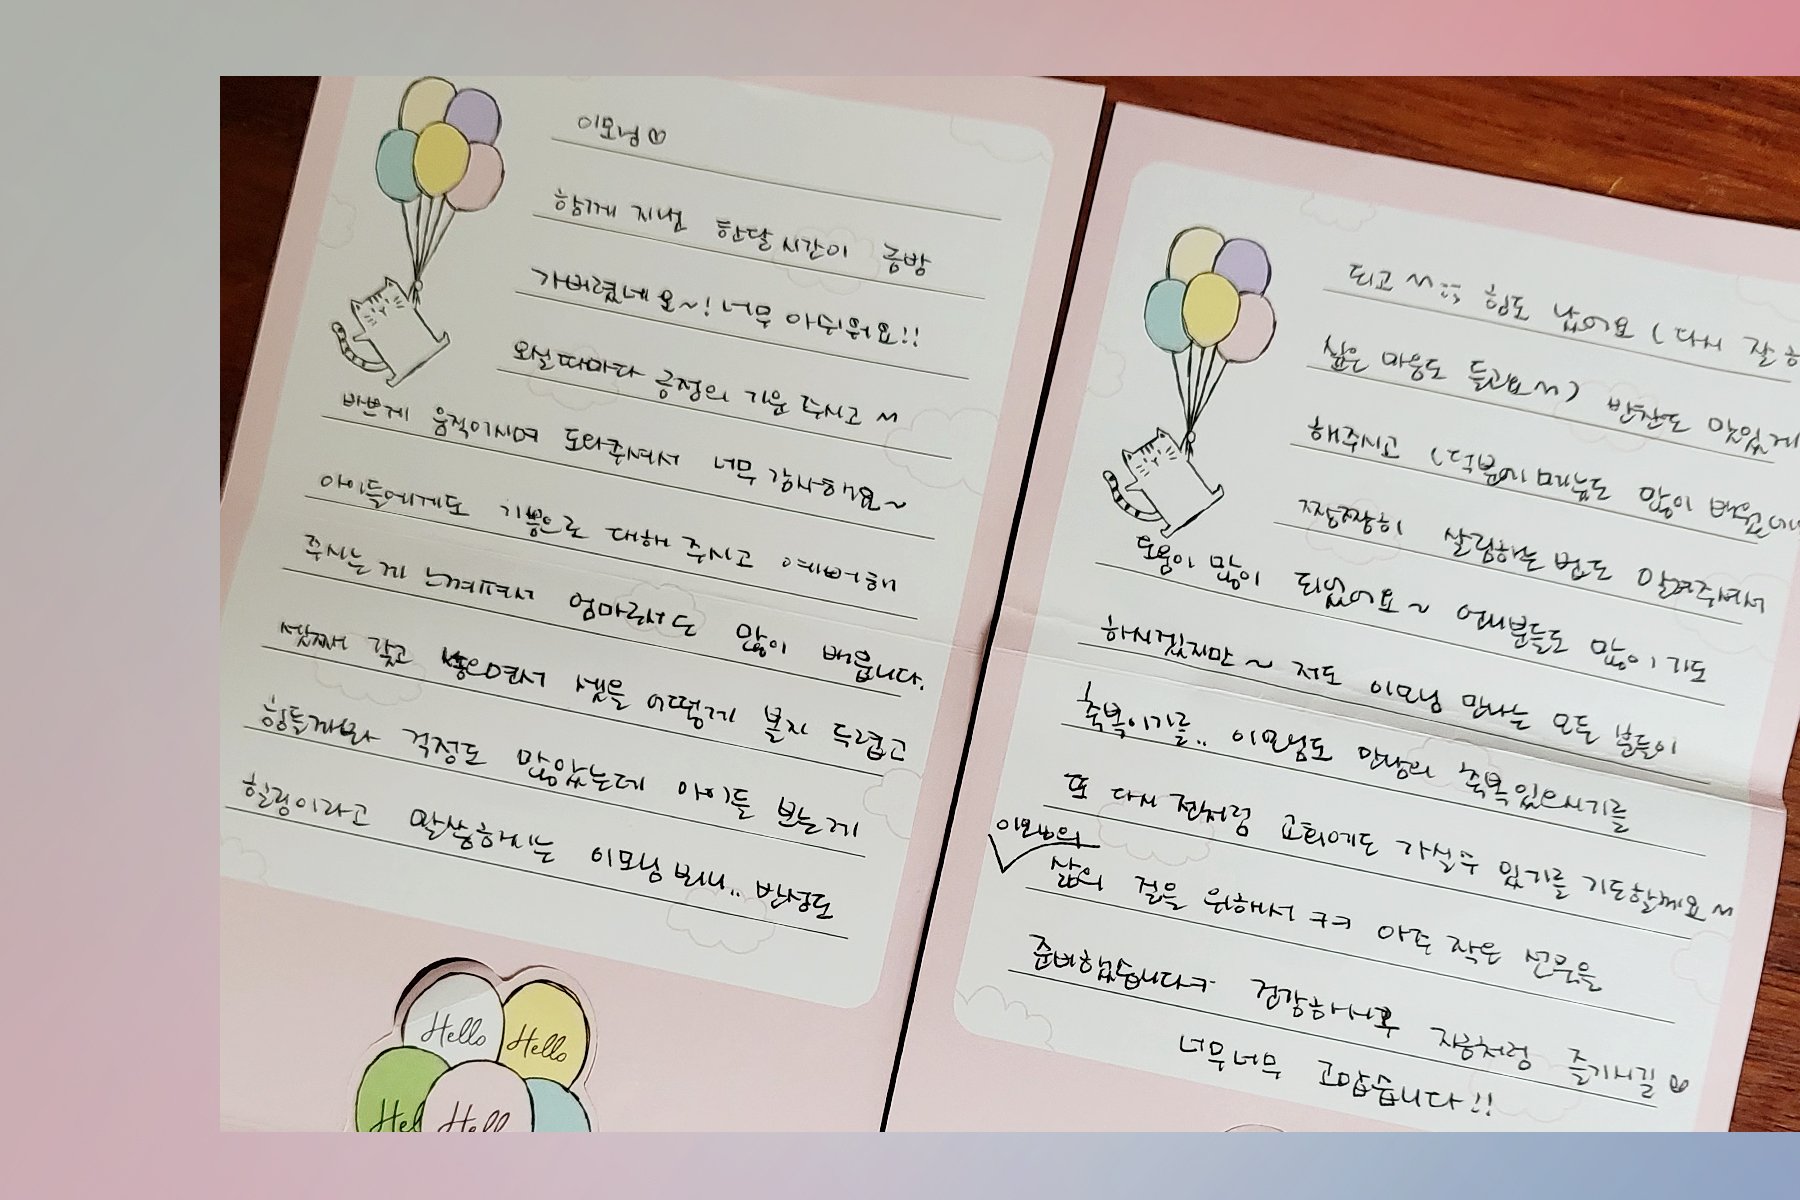 이모님♡
함께 지낸 한달 시간이 금방
가버렸네요~! 너무 아쉬워요!!
오실때마다 긍정의 기운 주시고 ^^
바쁘게 움직이시며 도와주셔서 너무 감사해요~
아이들에게도 기쁨으로 대해 주시고 예뻐해
주시는게 느껴져서 엄마로서도 많이 배웁니다.
셋째 갖고 낳으면서 셋을 어떻게 볼지 두렵고
힘들까봐 걱정도 많았는데 아이들 보는게
힐링이라고 말씀하시는 이모님 보니.. 반성도
되고 ^^;; 힘도 났어요 (다시 잘
싶은 마음도 들고요^^) 반찬도 맛있게
해주시고 (덕분에 메뉴도 많이
짱짱히 살림하는 법도 알려주셔서
도움이 많이 되었어요~ 여러분들도 많이 기도
하시겠지만~ 저도 이모님 만나는 모든 분들이
축복이기를.. 이모님도 만남의 축복있으시기를
또 다시 전처럼 교회에도 가실수 있기를 기도할께요^^
이모님의
삶의 질을 위해서 ㅋㅋ 아주 작은 선물을
준비했습니다ㅋ 건강하시구 지금처럼 즐기시길♡
너무너무 고맙습니다!!
Hello
Hello
Hel
Hell